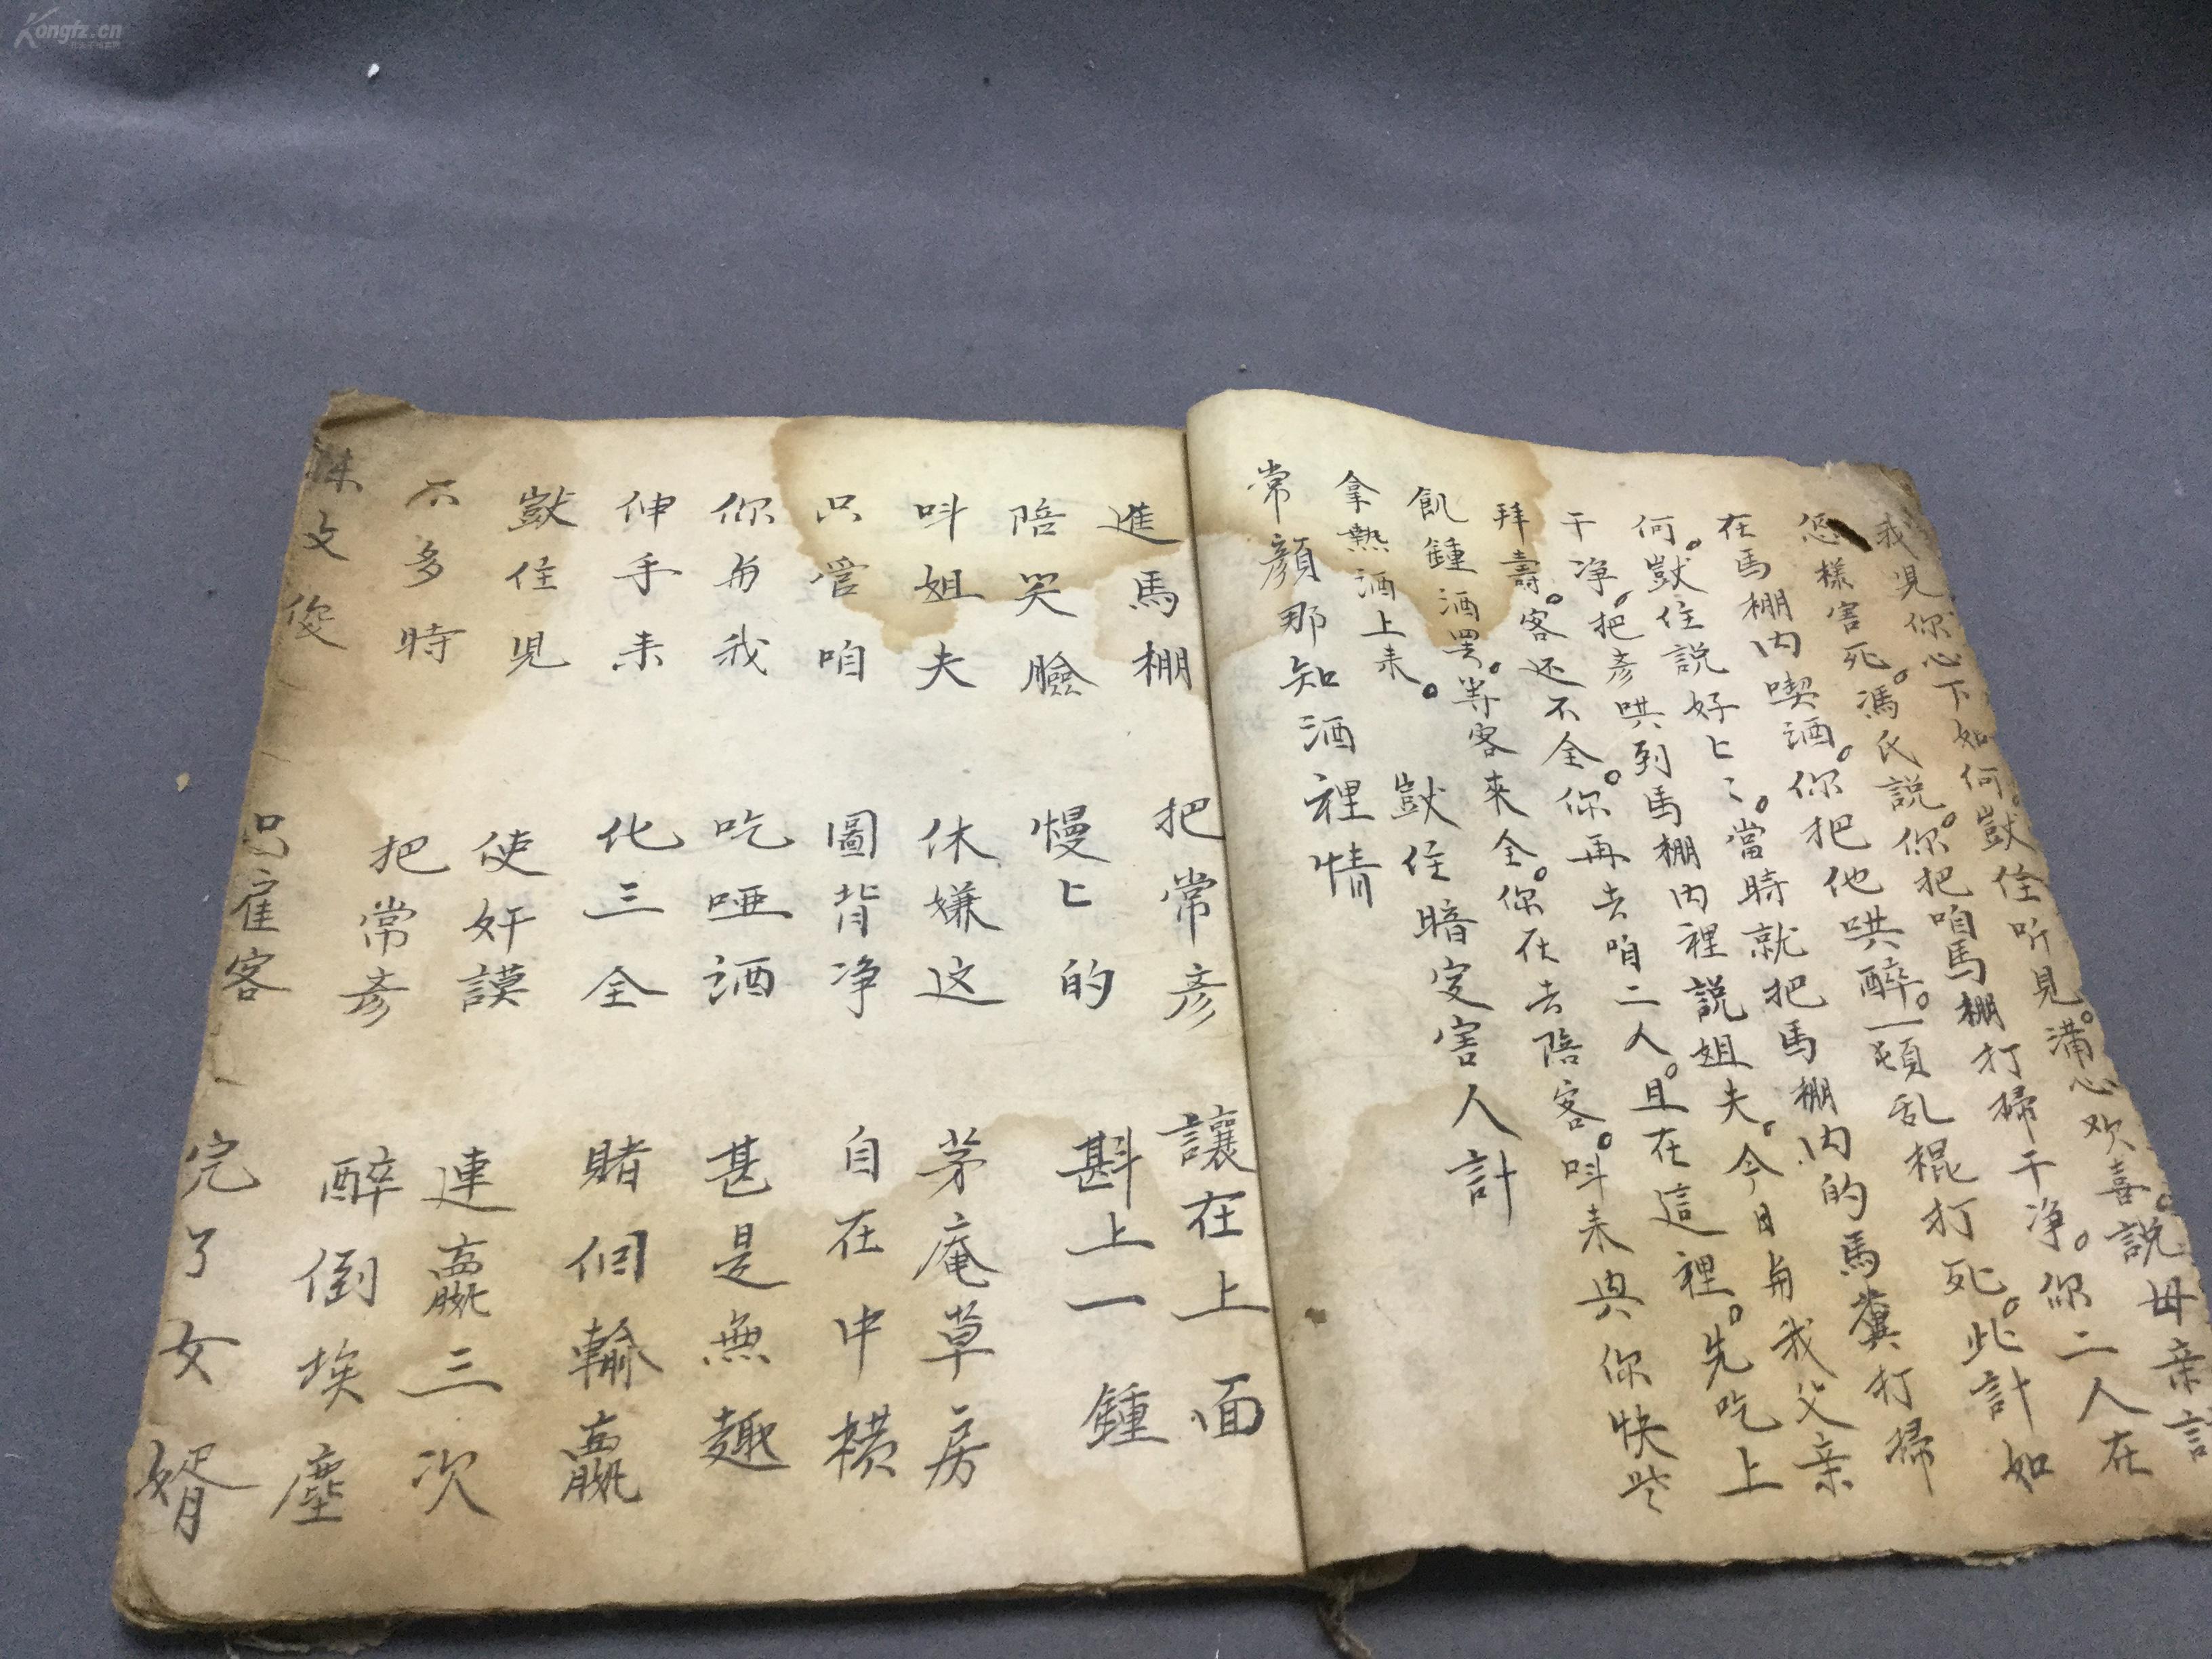 我児你心下如何。獃住听見。满心欢喜。説母亲計
怎樣害死。馮氏説。你把咱馬棚打掃干净。你二人在
在馬棚内喫酒。你把他哄醉。一頓乱棍打死。此計如
何。獃住説好上〻。當時就把馬棚内的馬糞打掃
干净。把彦哄到馬棚内裡説姐夫。今日與我父亲
拜壽。客还不全。你再去咱二人。且在這裡。先吃上
飢鍾酒罢。等客來全。你在去陪客。呌来與你快些
拿熱酒上来。
獃住暗定害人計
常顔那知酒裡情
進馬棚 把常彦 讓在上面
陪笑臉 慢上的 斟上一鍾
呌姐夫 休嫌这 茅庵草房
只管咱 圖背净 自在中横
你與我 吃哑酒 甚是無趣
伸手来 化三全 賭個輸贏
獃住見 使奸謨 連贏三次
不多時 把常彦 醉倒埃塵
文俊 客 完了女婿
Kongfz.cn